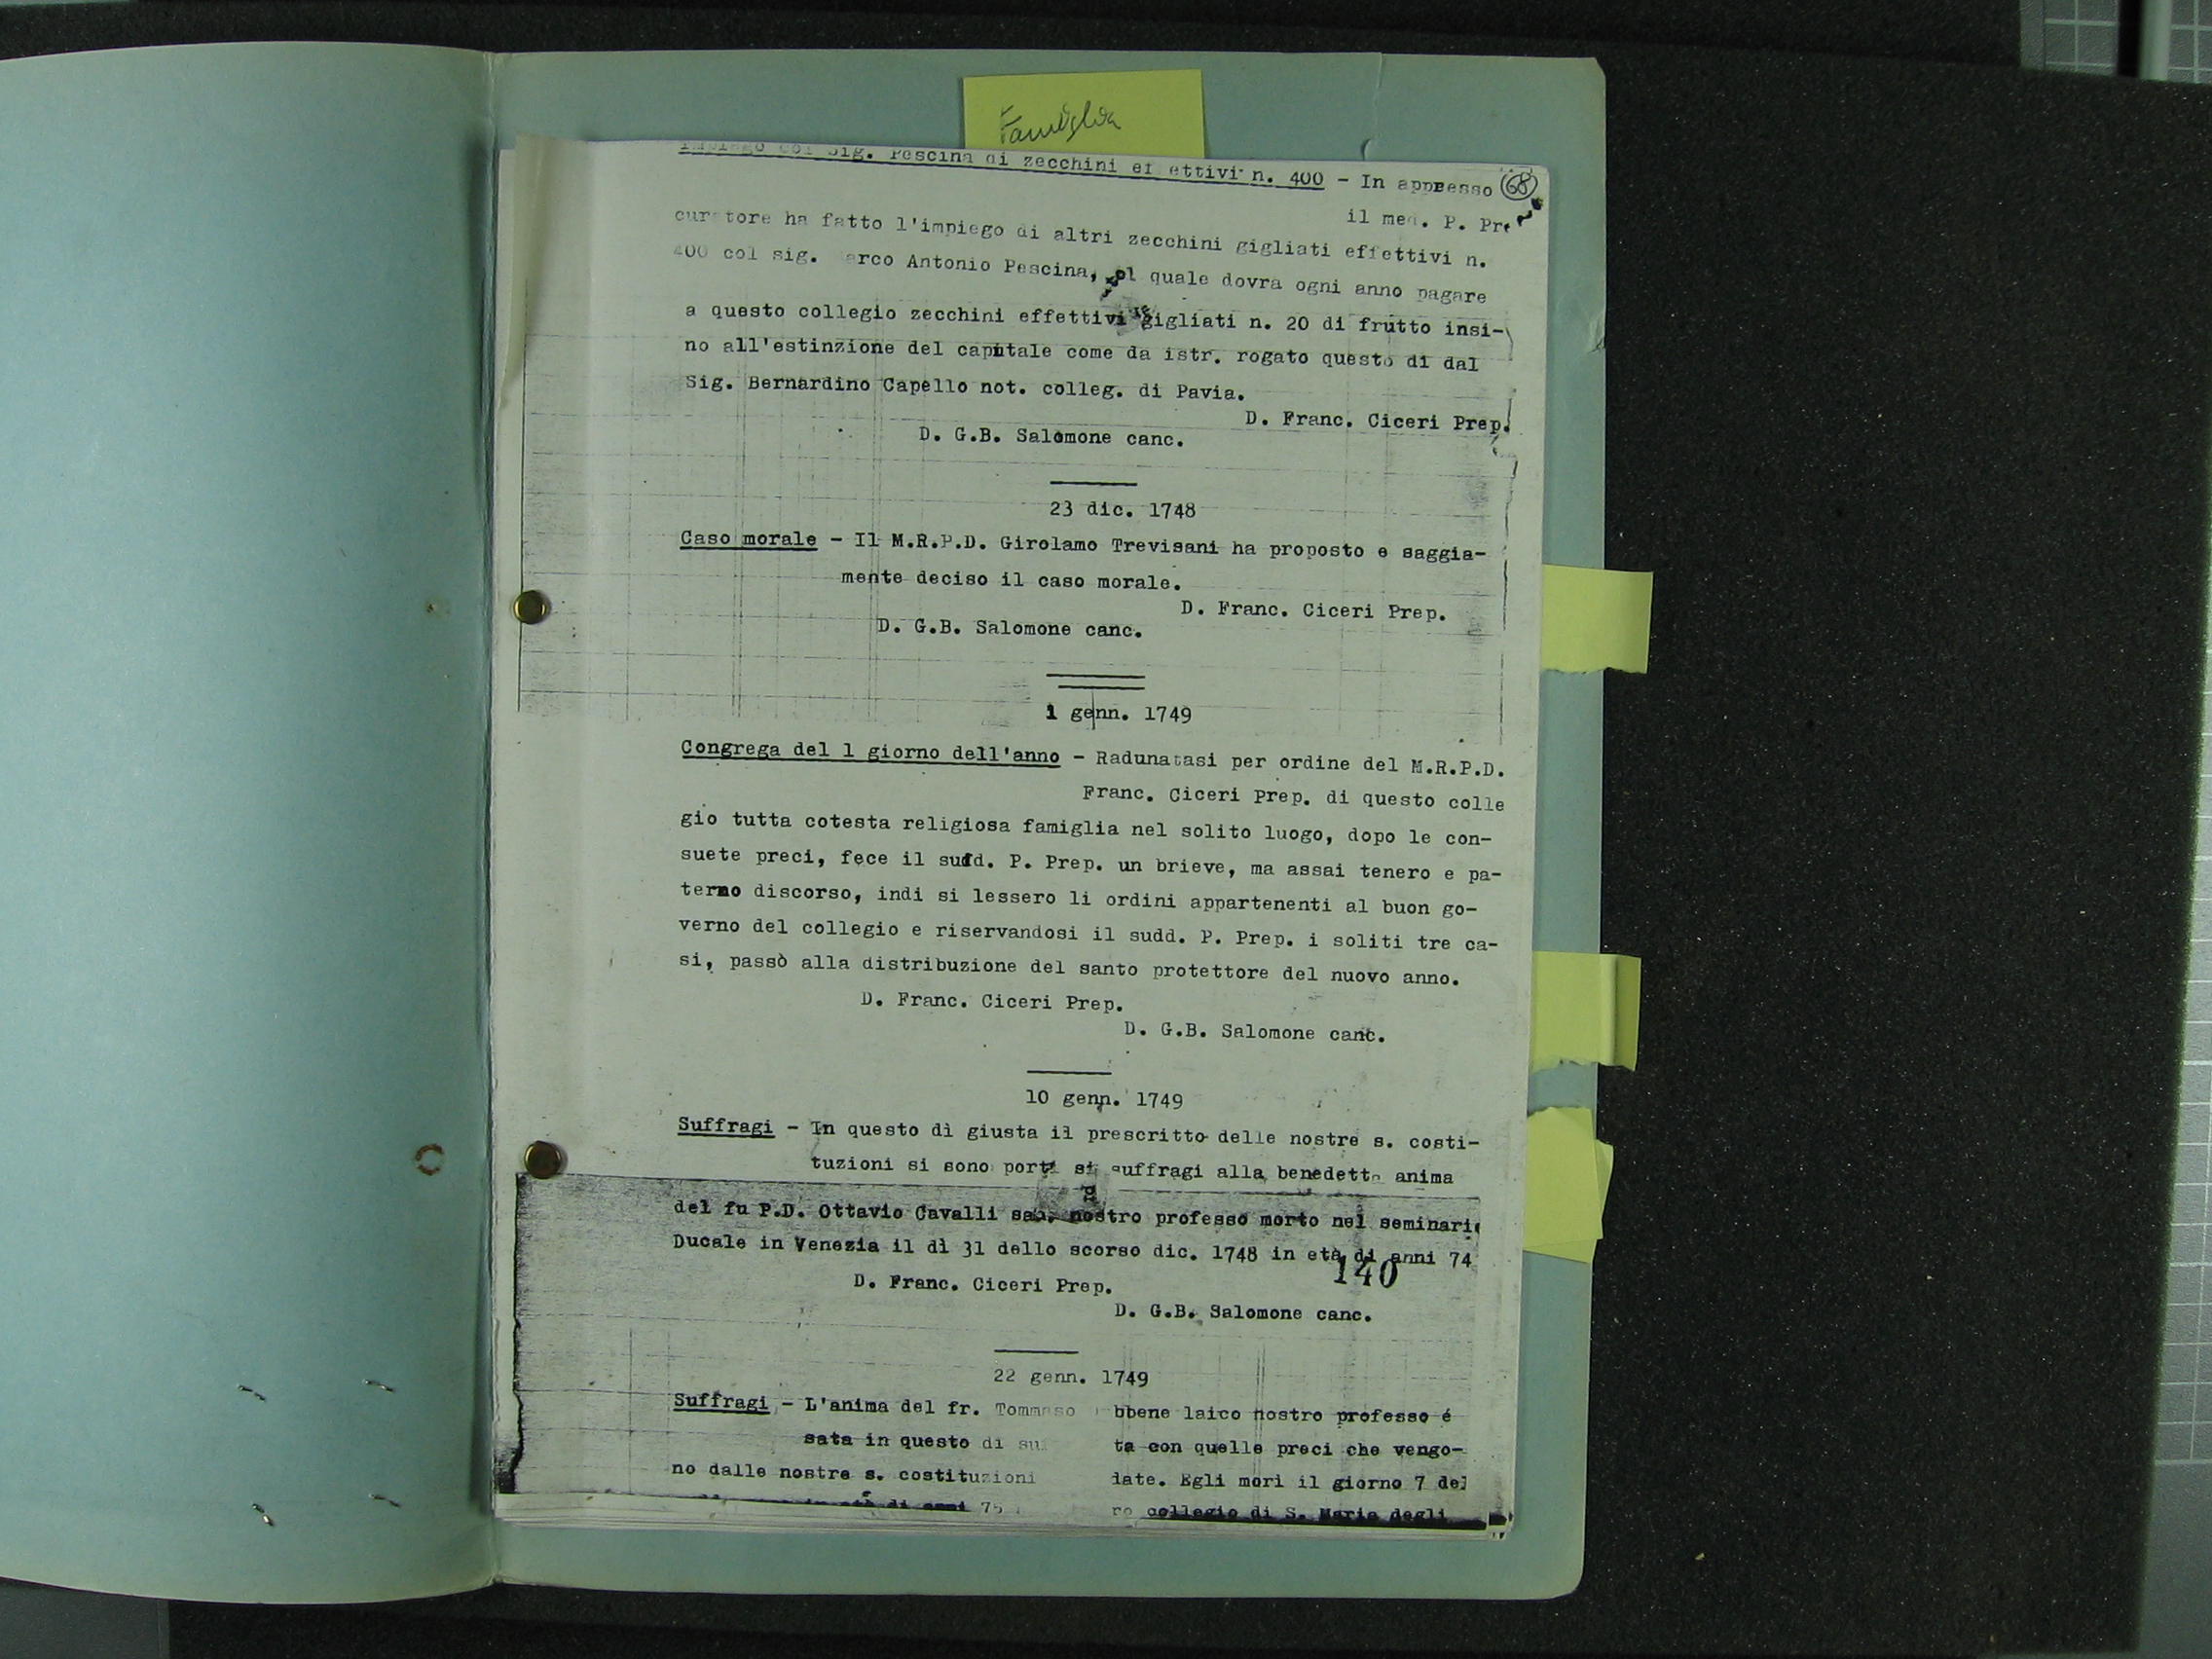 Famiglia
Impiego col Sig. Pescina di zecchini effettivi n. 400 - In appresso 68
il med. P. Pro
curatore ha fatto l'impiego di altri zecchini gigliati effettivi n.
400 col sig. arco Antonio Pescina, ol quale dovra ogni anno pagare
a questo collegio zecchini effettivi gigliati n. 20 di frutto insi-
no all'estinzione del capitale come da istr. rogato questo di dal
Sig. Bernardino Capello not. colleg. di Pavia.
D. Franc. Ciceri Prep.
D. G.B. Salomone canc.
23 dic. 1748
Caso morale - Il M.R.P.D. Girolamo Trevisani ha proposto e saggia-
mente deciso il caso morale.
D. Franc. Ciceri Prep.
D. G.B. Salomone canc.
1 genn. 1749
Congrega del 1 giorno dell'anno - Radunatasi per ordine del M.R.P.D.
Franc. Ciceri Prep. di questo colle
gio tutta cotesta religiosa famiglia nel solito luogo, dopo le con-
suete preci, fece il sudd. P. Prep. un brieve, ma assai tenero e pa-
terno discorso, indi si lessero li ordini appartenenti al buon go-
verno del collegio e riservandosi il sudd. P. Prep. i soliti tre ca-
si, passò alla distribuzione del santo protettore del nuovo anno.
D. Franc. Ciceri Prep.
D. G.B. Salomone canc.
10 genn. 1749
Suffragi - In questo dì giusta il prescritto delle nostre s. costi-
tuzioni si sono porti si suffragi alla benedetta anima
del fu P.D. Ottavio Cavalli sac. nostro professo morto nel seminario
Ducale in Venezia il dì 31 dello scorso dic. 1748 in età di anni 74
140
D. Franc. Ciceri Prep.
D. G.B. Salomone canc.
22 genn. 1749
Suffragi - L'anima del fr. Tommaso bbene laico nostro professo é
sata in questo di su ta con quelle preci che vengo-
no dalle nostre s. costituzioni iate. Egli mori il giorno 7 del
in età di anni 75 ro collegio di S. Maria degli